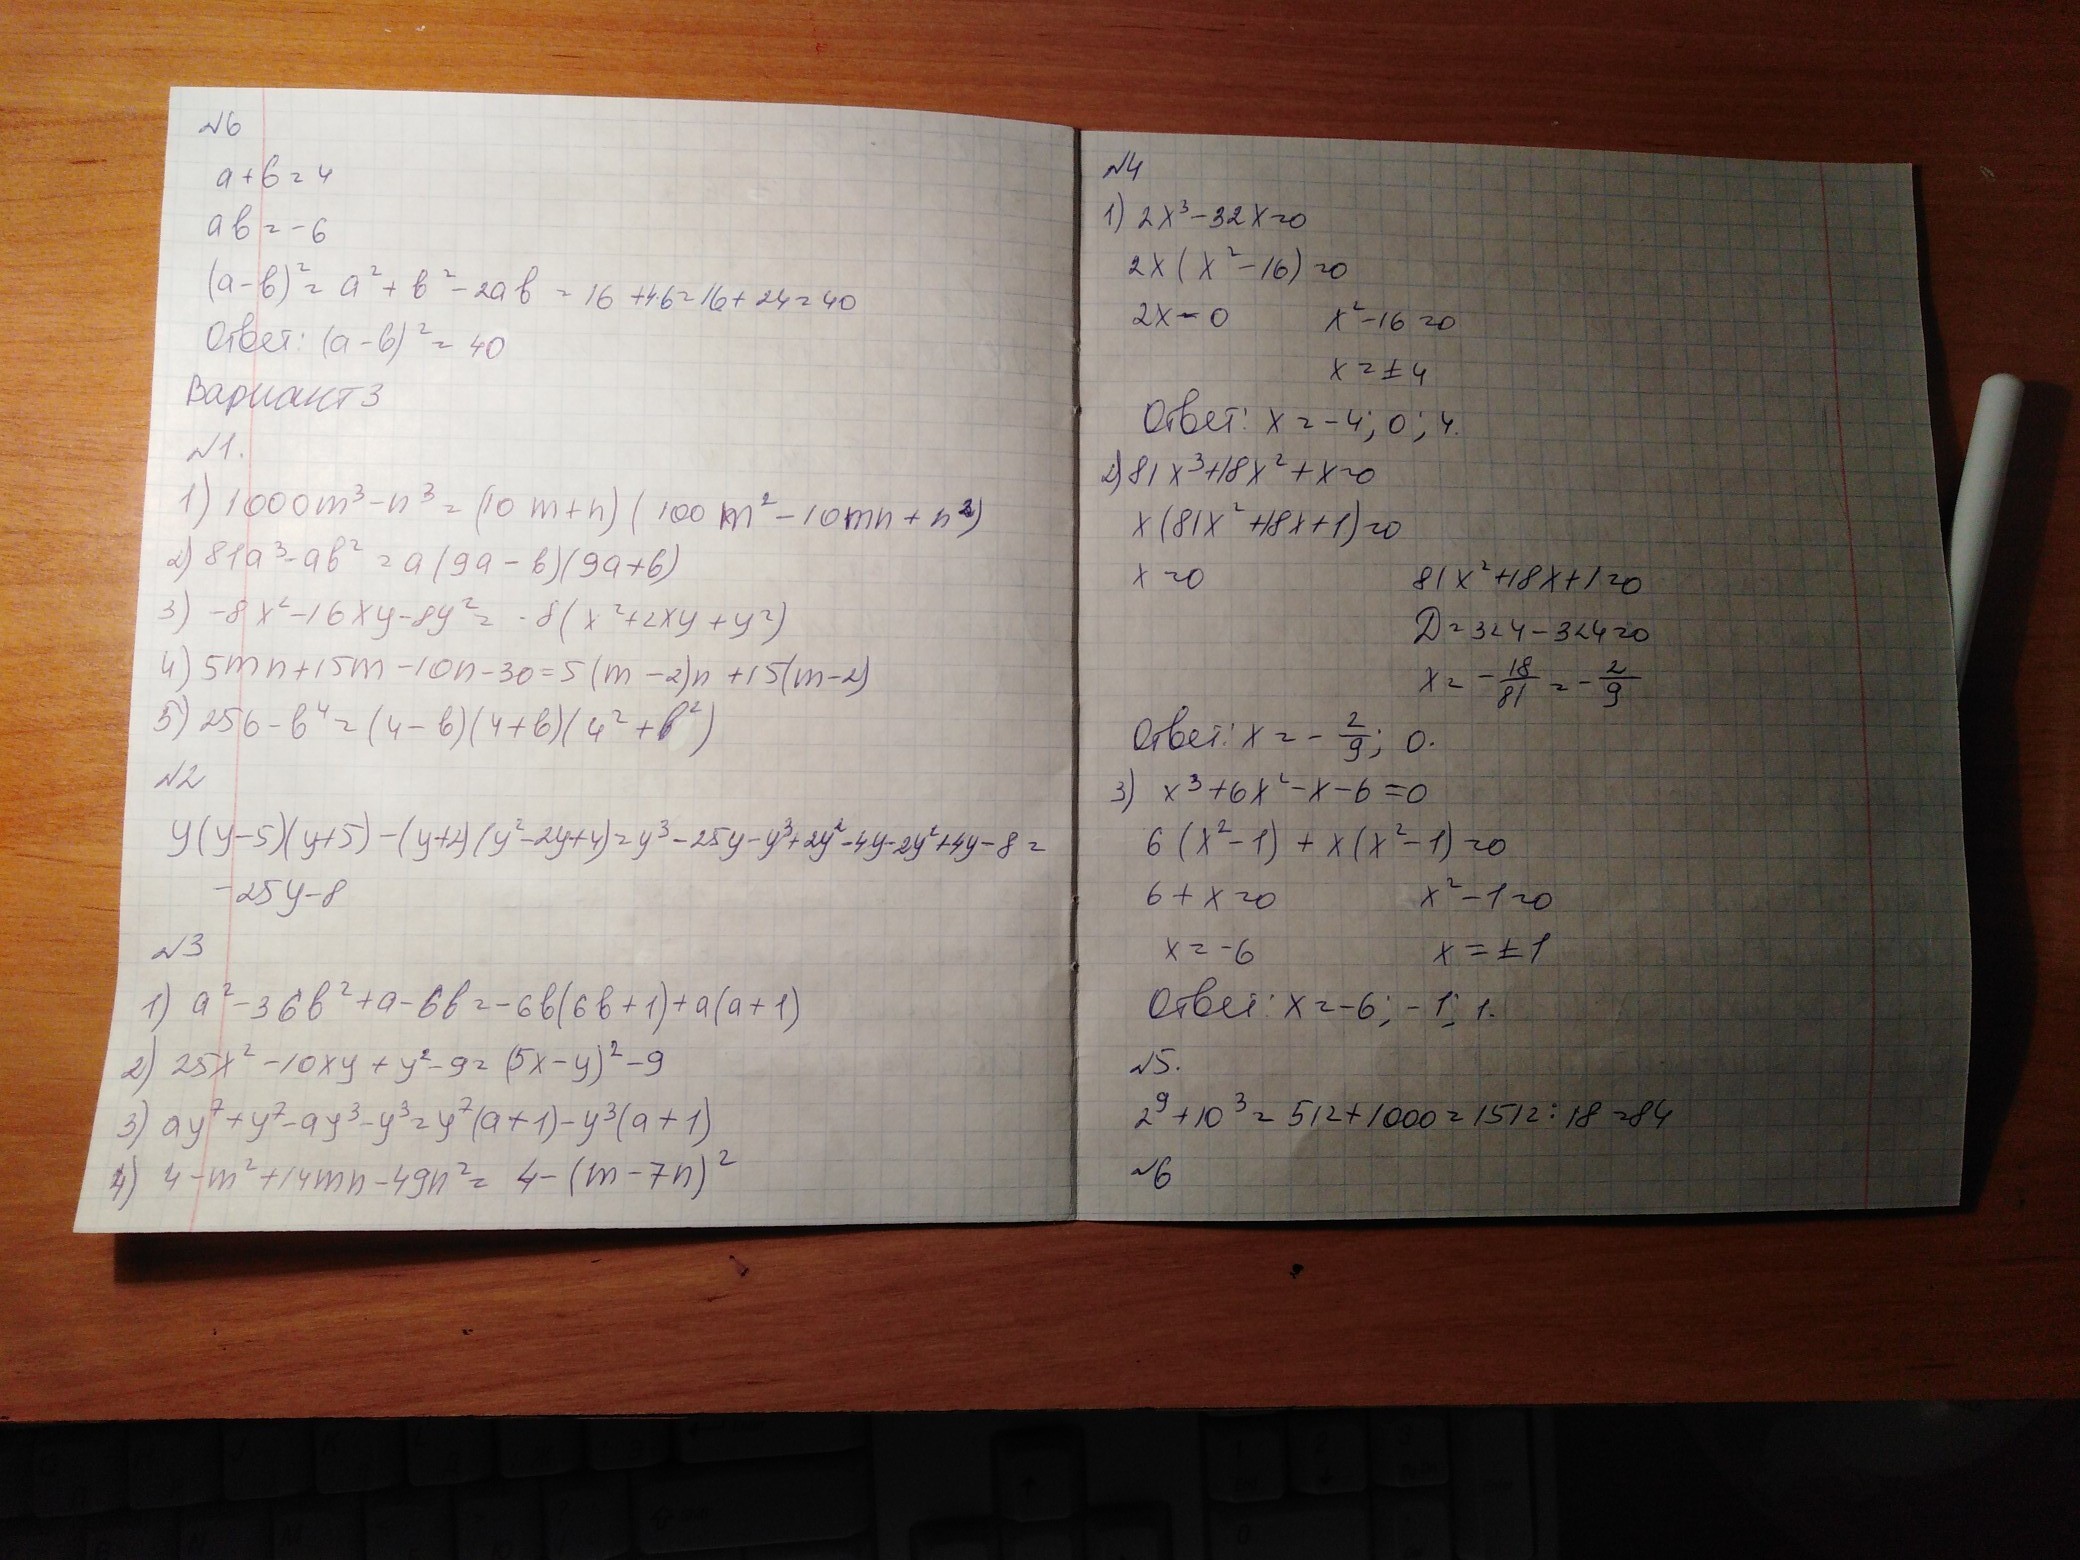 №6
a+b=4
ab=-6
(a-b)²=a²+b²-2ab=16+4·6=16+24=40
Ответ: (a-b)²=40
Вариант 3
№1.
1) 1000m³-n³=(10m+n)(100m²-10mn+n²)
2) 81a³-ab²=a(9a-b)(9a+b)
3) -8x²-16xy-8y²=-8(x²+2xy+y²)
4) 5mn+15m-10n-30=5(m-2)n+15(m-2)
5) 256-b⁴=(4-b)(4+b)(4²+b²)
№2
y(y-5)(y+5)-(y+2)(y²-2y+4)=y³-25y-y³+2y²-4y-2y²+4y-8=
-25y-8
№3
1) a²-36b²+a-6b=-6b(6b+1)+a(a+1)
2) 25x²-10xy+y²-9=(5x-y)²-9
3) ay⁷+y⁷-ay³-y³=y⁷(a+1)-y³(a+1)
4) 4-m²+14mn-49n²=4-(m-7n)²
№4
1) 2x³-32x=0
2x(x²-16)=0
2x=0 x²-16=0
x=±4
Ответ: x=-4; 0; 4.
2) 81x³+18x²+x=0
x(81x²+18x+1)=0
x=0 81x²+18x+1=0
D=324-324=0
x=-18/81=-2/9
Ответ: x=-2/9; 0.
3) x³+6x²-x-6=0
6(x²-1)+x(x²-1)=0
6+x=0 x²-1=0
x=-6 x=±1
Ответ: x=-6; -1; 1.
№5.
2⁹+10³=512+1000=1512:18=84
№6